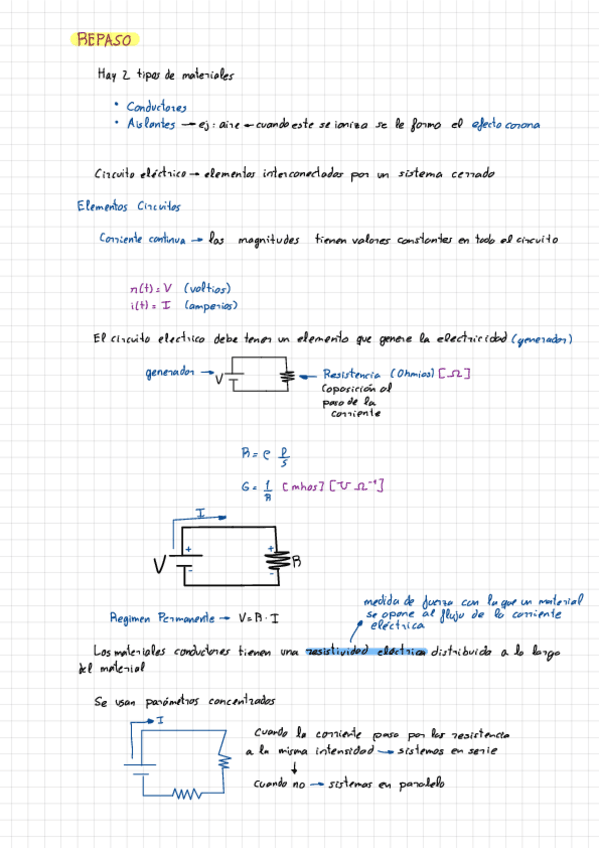 REPASO
Hay 2 tipos de materiales
• Conductores
• Aislantes → ej: aire → cuando este se ioniza se le forma el efecto corona
Circuito eléctrico → elementos interconectados por un sistema cerrado
Elementos Circuitos
Corriente continua → las magnitudes tienen valores constantes en todo el circuito
n(t) = V (voltios)
i(t) = I (amperios)
El circuito electrico debe tener un elemento que genere la electricidad (generador)
generador → V ← Resistencia (Ohmios) [Ω]
(oposición al
paso de la
corriente
R = ρ l/s
G = 1/R [mhos] [℧ Ω⁻¹]
I
V + - + - R
medida de fuerza con la que un material
se opone al flujo de la corriente
eléctrica
Regimen Permanente → V = R · I
Los materiales conductores tienen una resistividad eléctrica distribuida a lo largo
del material
Se usan parámetros concentrados
I
Cuando la corriente pasa por las resistencia
a la misma intensidad → sistemas en serie
↓
Cuando no → sistemas en paralelo